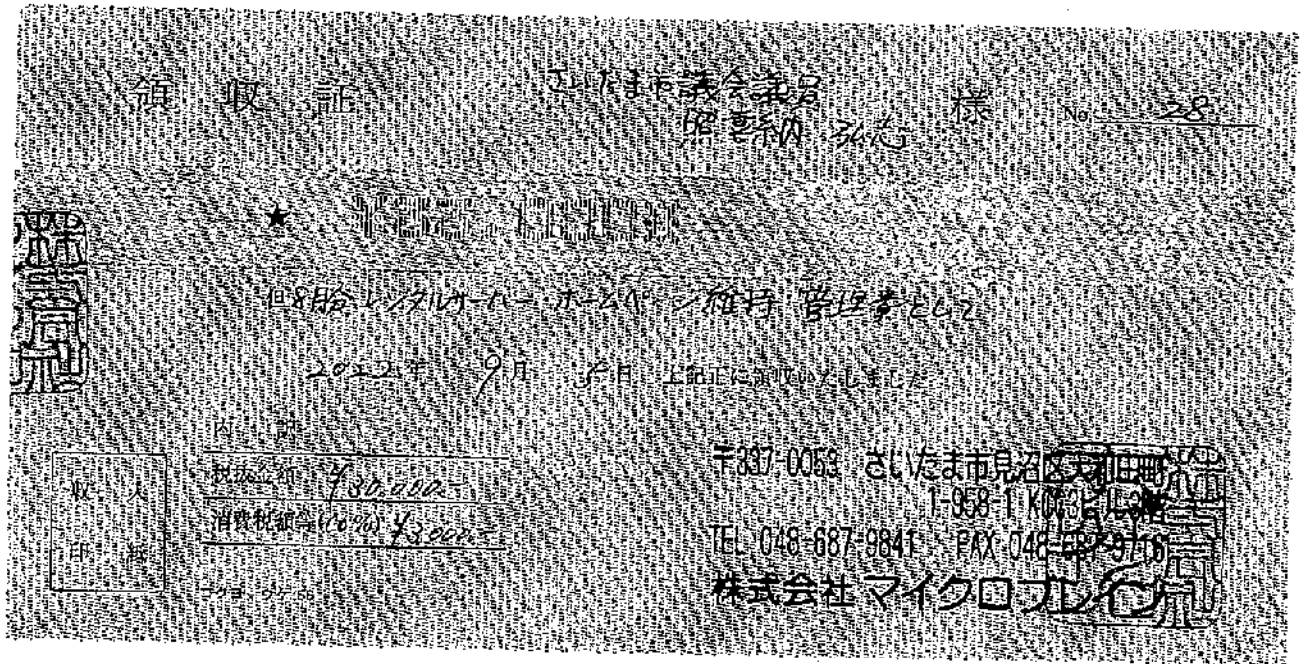 領収証
さいたま市議会議員
照喜納 弘志 様
No 28
★
但 8月分 レンタルサーバー・ホームページ維持・管理費として
2022年 9月 5日 上記正に領収いたしました
内 訳
税抜金額 ¥30,000.-
消費税額等(10%) ¥3,000.-
収 入
印 紙
〒337-0053 さいたま市見沼区大和田町
1-958-1 KCC3ビル3階
TEL 048-687-9841 FAX 048-687-9716
株式会社マイクロブレイン